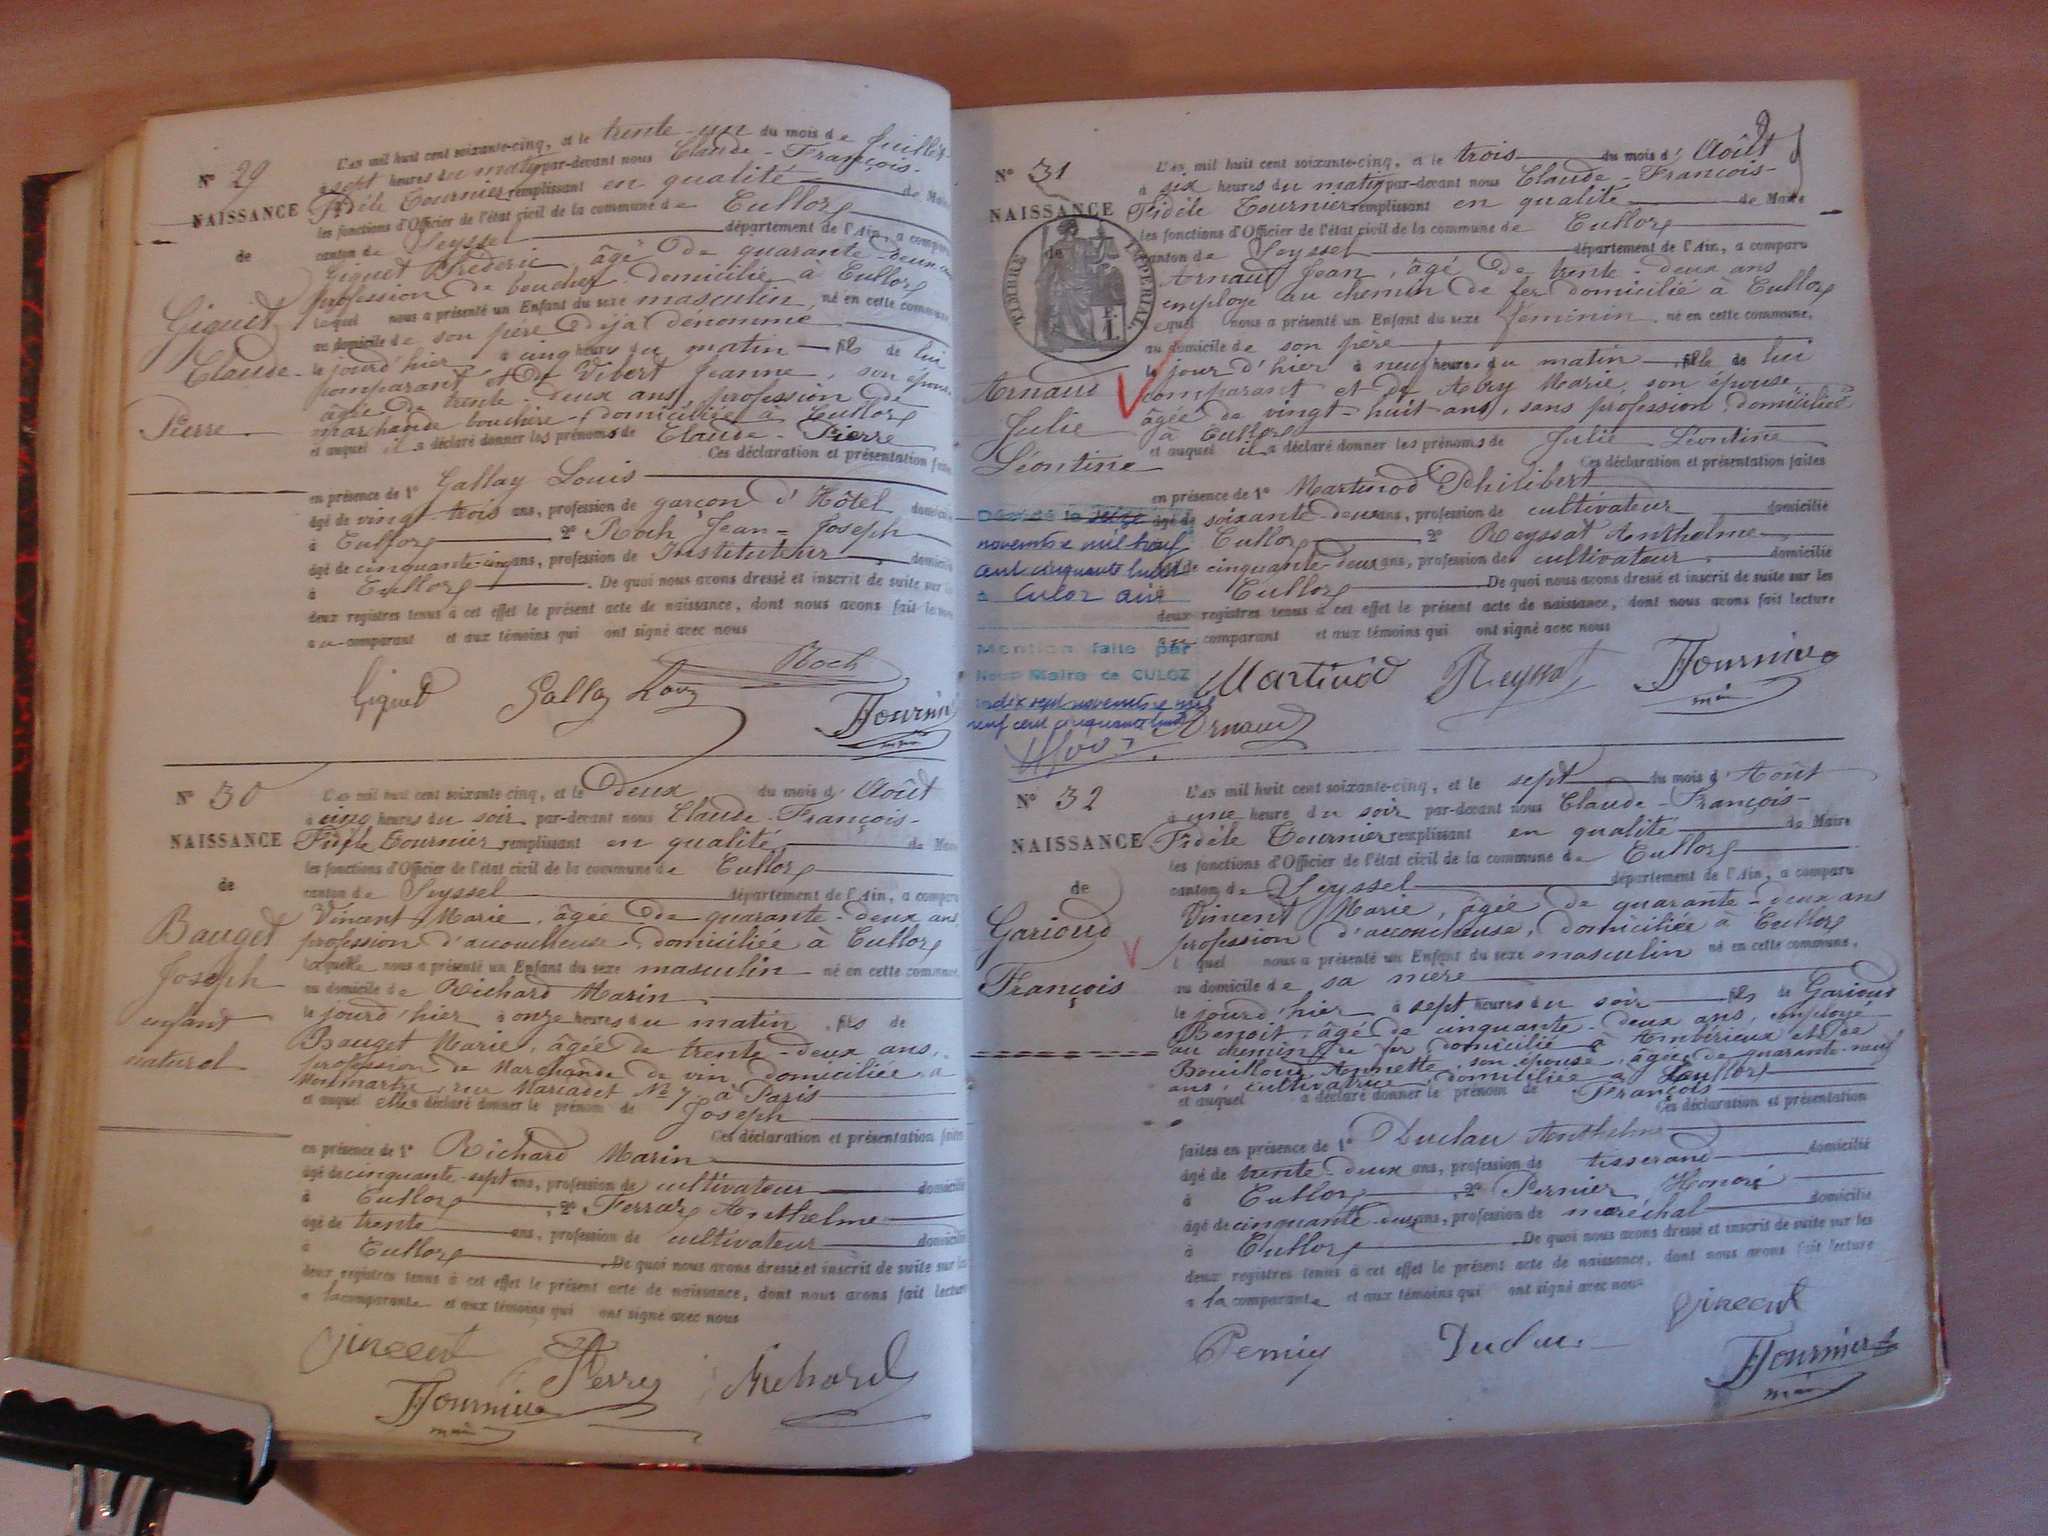 N° 29
NAISSANCE
de
Giguet
Claude-
Pierre
L'an mil huit cent soixante-cinq, et le trente-un du mois de Juillet
à sept heures du matin par-devant nous Claude-François-
Fidèle Tournier remplissant en qualité de Maire
les fonctions d'Officier de l'état civil de la commune de Culloz
canton de Seyssel département de l'Ain, a comparu
Giguet Fréderic, âgé de quarante-deux ans
profession de boucher domicilié à Culloz
lequel nous a présenté un Enfant du sexe masculin né en cette commune
au domicile de son père déjà dénommé
le jourd'hier à cinq heures du matin fils de lui
comparant et de Vibert Jeanne, son épouse
âgée de trente-deux ans, profession de
marchande bouchère, domiciliée à Culloz
et auquel il a déclaré donner les prénoms de Claude-Pierre
Ces déclaration et présentation faites
en présence de 1° Gallay Louis
âgé de vingt-trois ans, profession de garçon d'Hôtel domicilié
à Culloz 2° Roch Jean-Joseph
âgé de cinquante-cinq ans, profession de Instituteur domicilié
à Culloz. De quoi nous avons dressé et inscrit de suite sur les
deux registres tenus à cet effet le présent acte de naissance, dont nous avons fait lecture
au comparant et aux témoins qui ont signé avec nous
Roch
Giguet Gallay Louis
Tournier
N° 30
NAISSANCE
de
Bauget
Joseph
enfant
naturel
L'an mil huit cent soixante-cinq, et le Deux du mois d'Août
à cinq heures du soir par-devant nous Claude-François-
Fidèle Tournier remplissant en qualité de Maire
les fonctions d'Officier de l'état civil de la commune de Culloz
canton de Seyssel département de l'Ain, a comparu
Vincent Marie, âgée de quarante-deux ans
profession d'accoucheuse domiciliée à Culloz
laquelle nous a présenté un Enfant du sexe masculin né en cette commune
au domicile de Richard Marin
le jourd'hier à onze heures du matin, fils de
Bauget Marie, âgée de trente-deux ans,
profession de Marchande de vin domiciliée à
Montmartre, rue Marcadet N° 7 à Paris
et auquel elle a déclaré donner le prénom de Joseph
Ces déclaration et présentation faites
en présence de 1° Richard Marin
âgé de cinquante-sept ans, profession de cultivateur domicilié
à Culloz, 2° Ferraz Anthelme
âgé de trente ans, profession de cultivateur domicilié
à Culloz. De quoi nous avons dressé et inscrit de suite sur les
deux registres tenus à cet effet le présent acte de naissance, dont nous avons fait lecture
a la comparante et aux témoins qui ont signé avec nous
Vincent Richard
Tournier
N° 31
NAISSANCE
de
TIMBRE IMPERIAL
Arnaud
Julie
Léontine
L'an mil huit cent soixante-cinq, et le trois du mois d'Août
à six heures du matin par-devant nous Claude-François-
Fidèle Tournier remplissant en qualité de Maire
les fonctions d'Officier de l'état civil de la commune de Culloz
canton de Seyssel département de l'Ain, a comparu
Arnaud Jean, âgé de trente-deux ans
employé au chemin de fer domicilié à Culloz
lequel nous a présenté un Enfant du sexe féminin né en cette commune,
au domicile de son père
le jour d'hier à neuf heures du matin fille de lui
comparant et de Abry Marie, son épouse,
âgée de vingt-huit-ans, sans profession, domiciliée
à Culloz
et auquel il a déclaré donner les prénoms de Julie Léontine
Ces déclaration et présentation faites
en présence de 1° Martinod Philibert
âgé de soixante-deux ans, profession de cultivateur domicilié
Culloz, 2° Reyssat Anthelme
âgé de cinquante-deux ans, profession de cultivateur domicilié
Culloz De quoi nous avons dressé et inscrit de suite sur les
deux registres tenus à cet effet le présent acte de naissance, dont nous avons fait lecture
au comparant et aux témoins qui ont signé avec nous
Décédé le seize
novembre mil neuf
cent cinquante huit
à Culoz Ain
Mention faite par
Nous Maire de CULOZ
le dix sept novembre mil
neuf cent cinquante huit
Martinod Reyssat Tournier
Arnaud
N° 32
NAISSANCE
de
Garioud
François
L'an mil huit cent soixante-cinq, et le sept du mois d'Août
à une heure du soir par-devant nous Claude-François-
Fidèle Tournier remplissant en qualité de Maire
les fonctions d'Officier de l'état civil de la commune de Culloz
canton de Seyssel département de l'Ain, a comparu
Vincent Marie, âgée de quarante-deux ans
profession d'accoucheuse, domiciliée à Culloz
l quel nous a présenté un Enfant du sexe masculin né en cette commune,
au domicile de sa mère
le jourd'hier à sept heures du soir fils de Garioud
Benoit, âgé de cinquante-deux ans, employé
au chemin de fer domicilié à Ambérieux et de
Bouilloud Annette, son épouse, âgée de quarante-neuf
ans, cultivatrice, domiciliée à Culloz
et auquel a déclaré donner le prénom de François
Ces déclaration et présentation
faites en présence de 1° Duclau Anthelme
âgé de trente-deux ans, profession de tisserand domicilié
à Culloz, 2° Pernier Honoré
âgé de cinquante-deux ans, profession de maréchal domicilié
à Culloz. De quoi nous avons dressé et inscrit de suite sur les
deux registres tenus à cet effet le présent acte de naissance, dont nous avons fait lecture
a la comparante et aux témoins qui ont signé avec nous
Vincent
Tournier